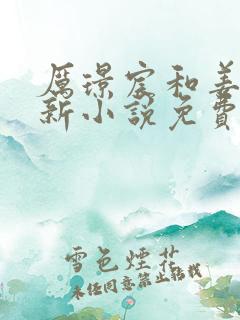 厲璟宸和姜
新小說免費
雪色煙花
未經同意禁止轉載